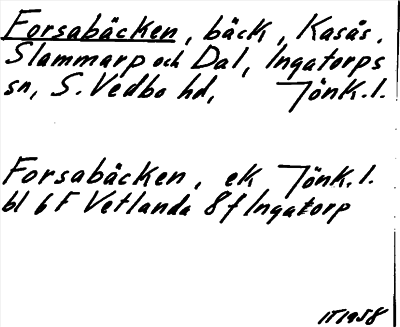 Forsabäcken, bäck, Kasås,
Slammarp och Dal, Ingatorps
sn, S. Vedbo hd, Jönk.l.
Forsabäcken, ek Jönk.l.
bl 6 F Vetlanda 8f Ingatorp
IT 1958